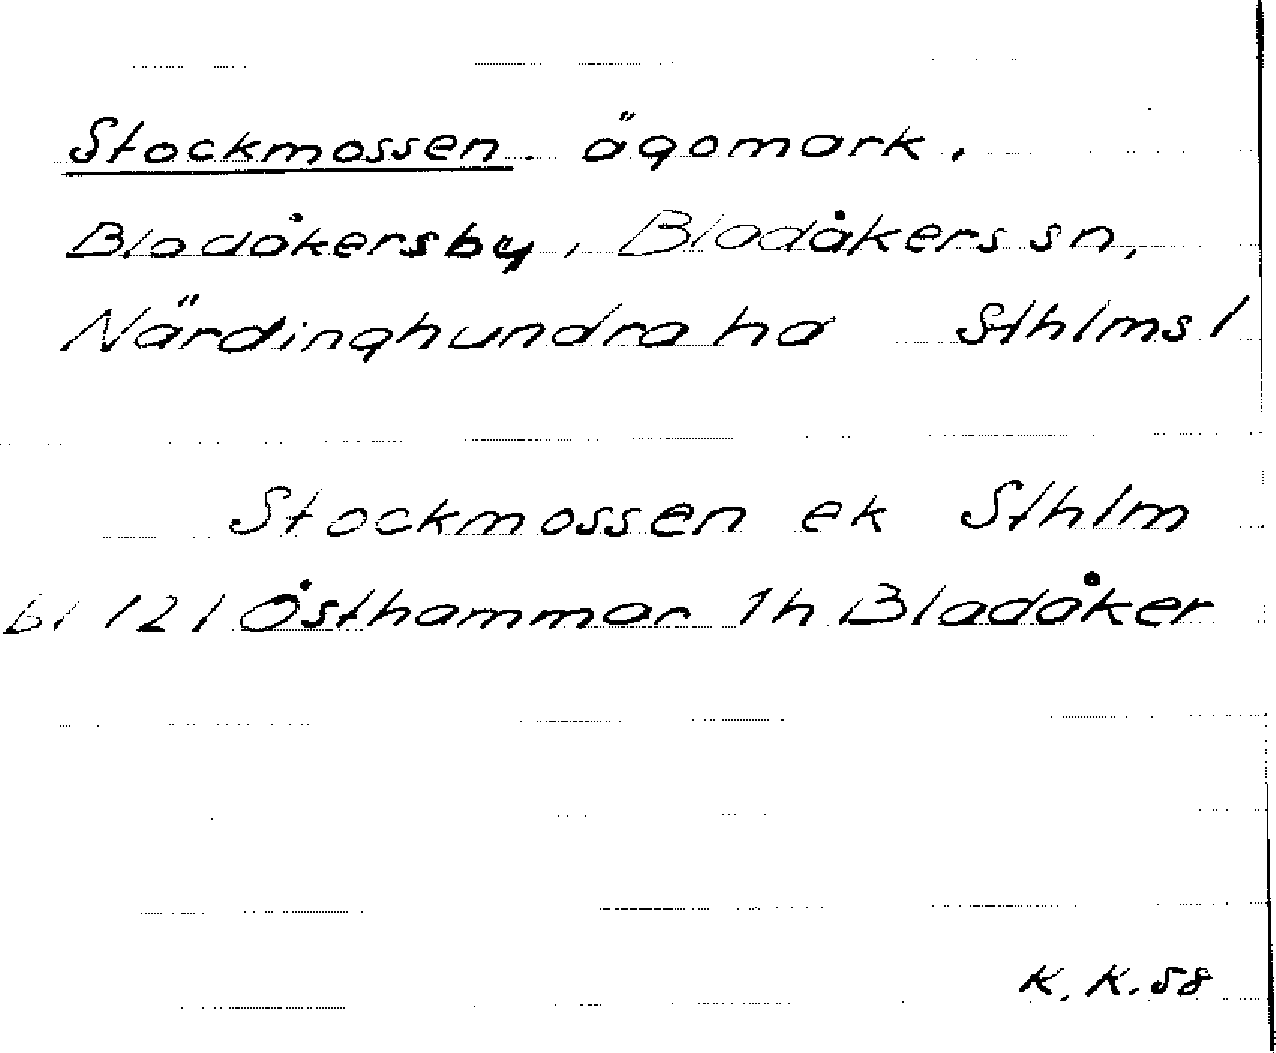 Stockmossen ägomark.
Bladåkersby, Bladåkers sn,
Närdinghundra hd Sthlms l
Stockmossen ek Sthlm
bl 121 Östhammar Th Bladåker
K. K. 58